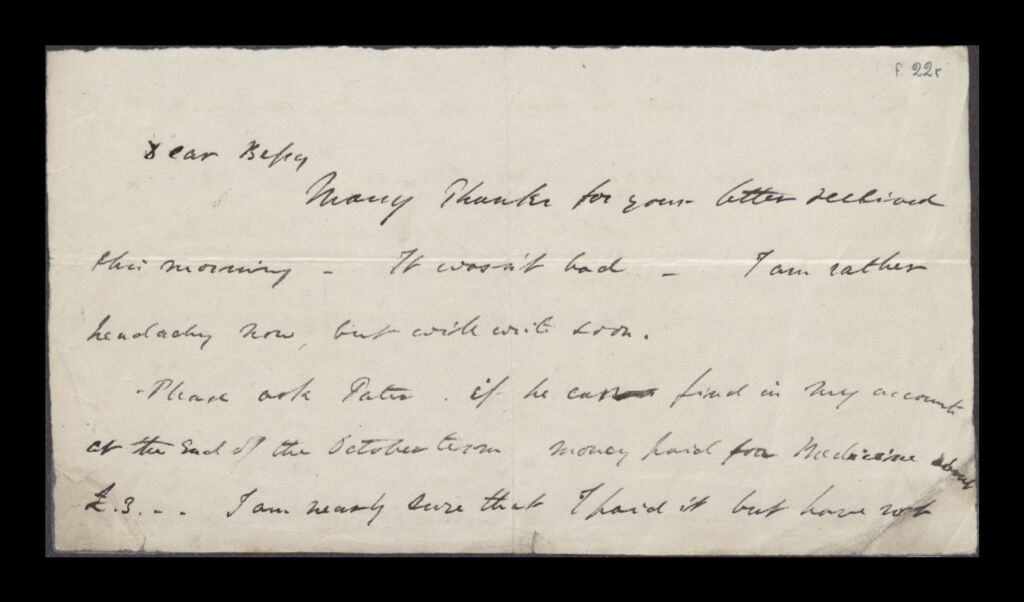 f 22r
Dear Bessy
Many Thanks for your letter received
this morning - It wasn't bad - I am rather
headachy now, but will write soon.
-Please ask Pater. if he can find in my account
at the End of the October term money paid for Medicine about
£.3.-. I am nearly sure that I paid it but have not